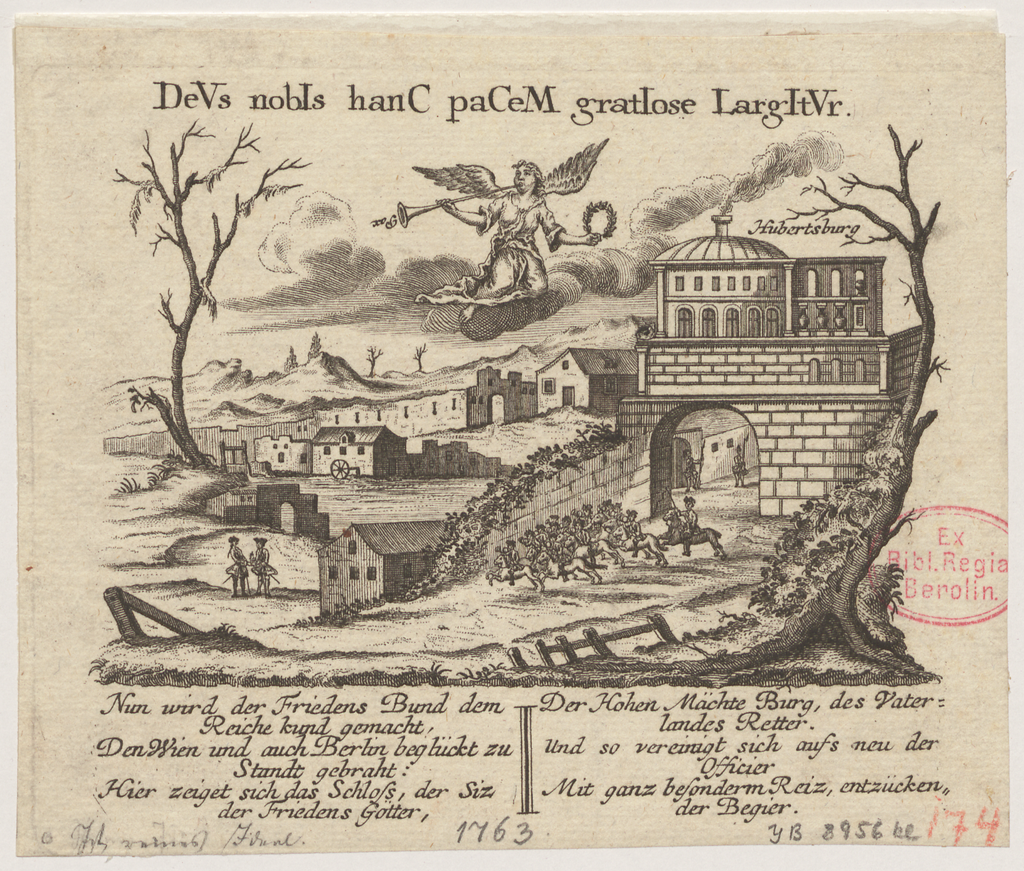 DeVs nobIs hanC paCeM gratIose LargItVr.
Pax
Hubertsburg
Ex
Bibl. Regia
Berolin.
Nun wird der Friedens Bund dem
Reiche kund gemacht,
Den Wien und auch Berlin beglückt zu
Standt gebraht:
Hier zeiget sich das Schloſs, der Siz
der Friedens Götter,
Der Hohen Mächte Burg, des Vater=
landes Retter.
Und so vereinigt sich aufs neu der
Officier
Mit ganz beſonderm Reiz, entzücken„
der Begier.
Ideal.
1763
YB 8956 kl
174